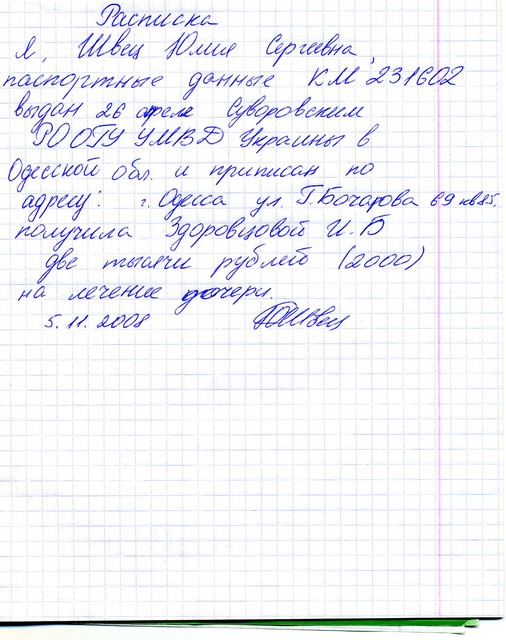 Расписка
Я, Швец Юлия Сергеевна,
паспортные данные КМ 231602
выдан 26 апреля Суворовским
РО ОГУ УМВД Украины в
Одесской обл. и приписан по
адресу: г. Одесса ул. Г. Бочарова 69 кв 85.
получила Здоровцовой И. Б
две тысячи рублей (2000)
на лечение дочери.
5. 11. 2008 ЮШвец